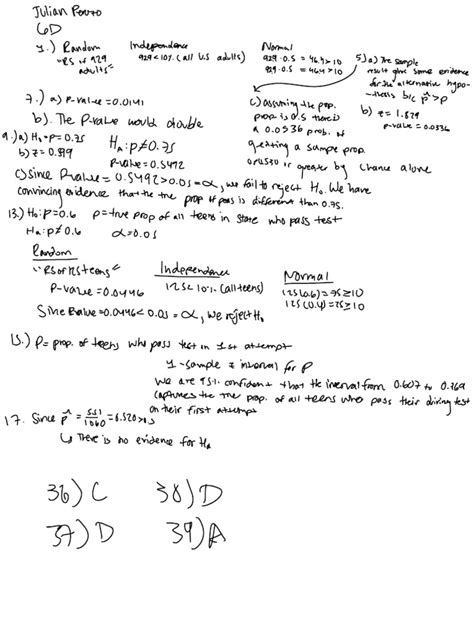 Julian
6D
1.) Random Independence Normal
"RS of 929 adults" 929 < 10% (all U.S adults) 929 · 0.5 = 464 > 10
929 · 0.5 = 464 > 10
5.) a) The sample
result give some evidence
for the alternative hypo-
thesis b/c p̂ > p
b) z = 1.829
P-value = 0.0336
7.) a) P-value = 0.0141
b). The P-value would double
c) assuming the pop.
prop is 0.5 there is
a 0.0336 prob. of
getting a sample prop.
or greater by chance alone
9.) a) H₀ = p = 0.75 Hₐ: p ≠ 0.75
b) z = 0.599
P-value = 0.5492
c) since P-value = 0.5492 > 0.05 = α, we fail to reject H₀. We have
convincing evidence that the true prop is different than 0.75.
13.) H₀: p = 0.6 p = true prop of all teens in state who pass test
Hₐ: p ≠ 0.6 α = 0.05
Random Independence Normal
"RS of 125 teens" 125 < 10% (all teens) 125(0.6) = 75 ≥ 10
P-value = 0.0446 125(0.4) = 75 ≥ 10
Since P-value = 0.0446 < 0.05 = α, we reject H₀
15.) P = prop. of teens who pass test in 1st attempt
1-sample z interval for P
We are 95% confident that the interval from 0.607 to 0.769
captures the true prop. of all teens who pass their driving test
on their first attempt
17. Since p̂ = 551/1060 =
↳ There is no evidence for Hₐ
36) C 38) D
37) D 39) A